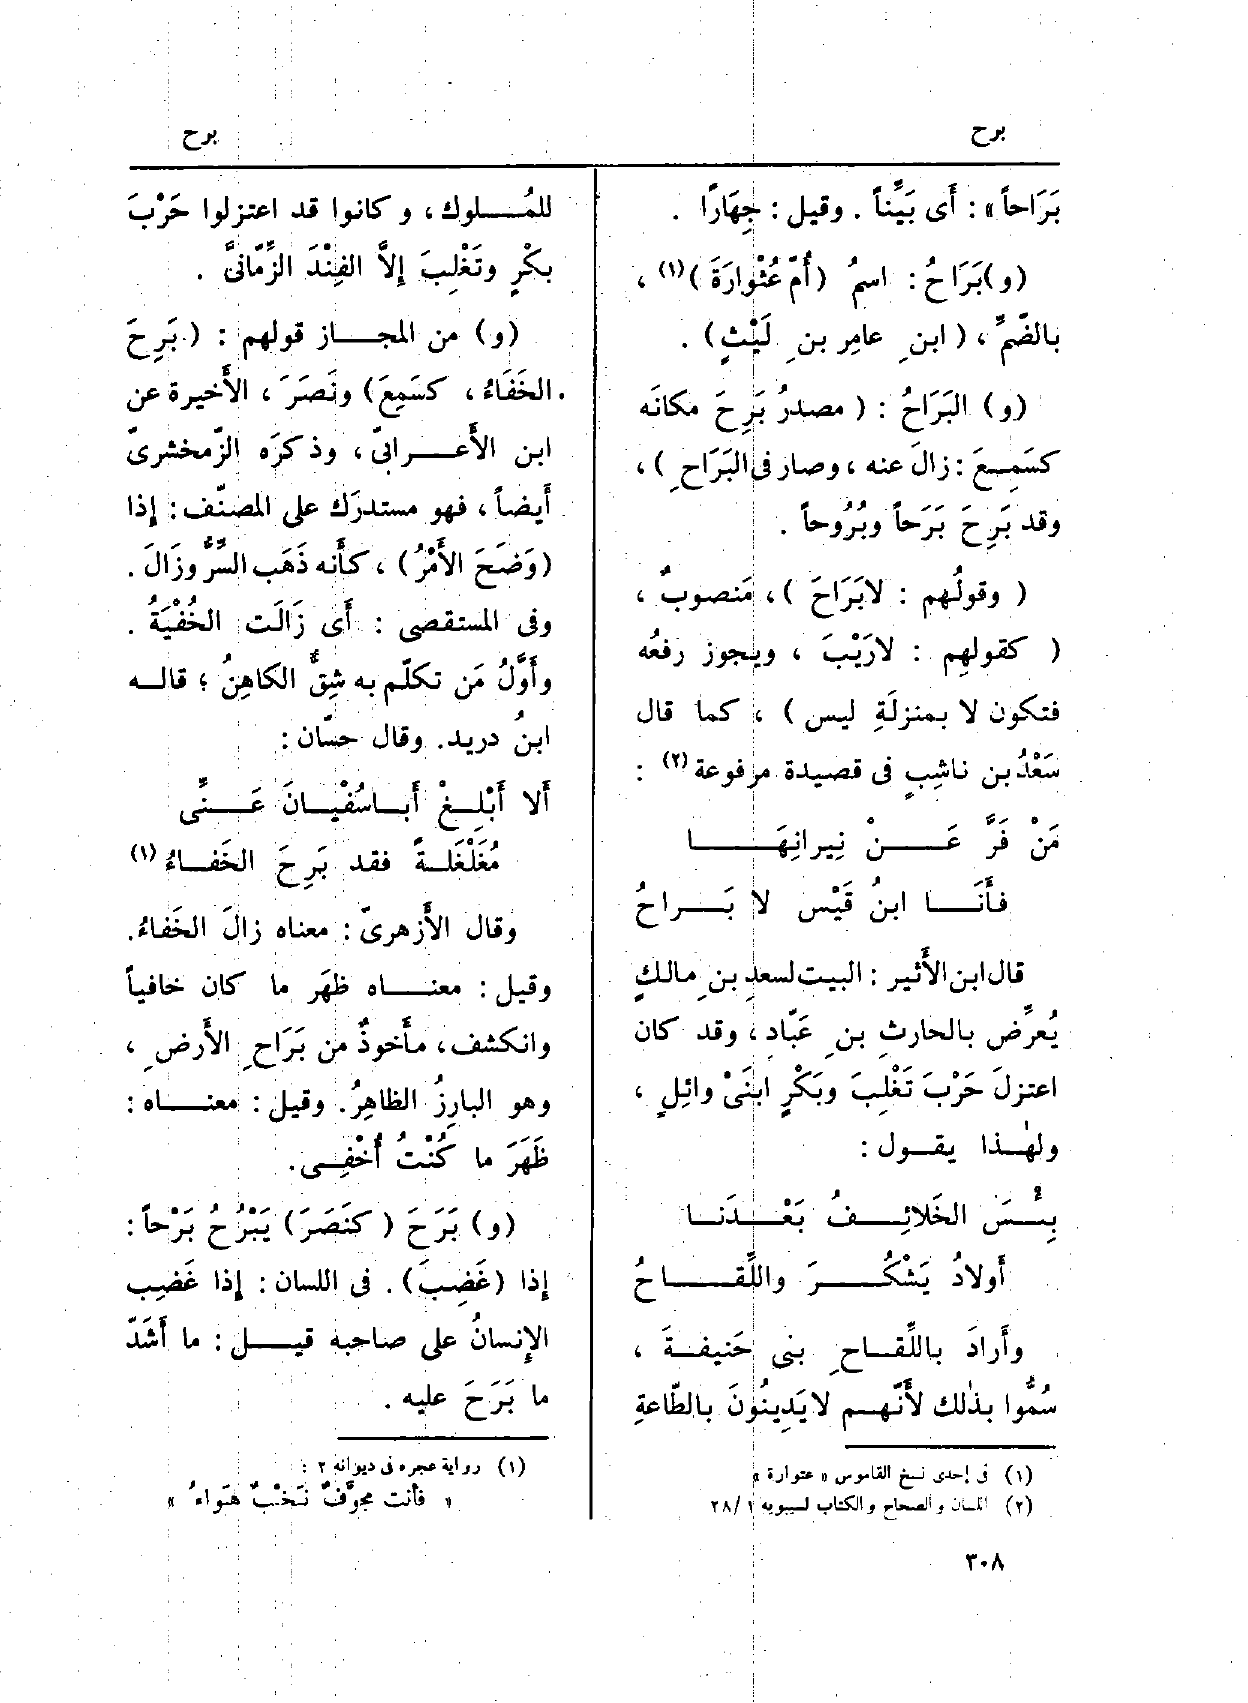 برح
برح
بَرَاحاً» : أَى بَيِّناً . وقيل : جِهَارًا .
(و)بَرَاحُ : اسمُ (أُمّ عُثْوارَةَ)(١) ،
بالضّمِّ ، (ابنِ عامِر بنِ لَيْثٍ) .
(و) البَرَاحُ : (مصدرُ بَرِحَ مكانَه
كسَمِعَ : زالَ عنه ، وصار فى البَرَاحِ) ،
وقد بَرِحَ بَرَحاً وبُرُوحاً .
(وقولُهم : لابَرَاحَ) ، مَنصوبٌ ،
(كقولهِم : لارَيْبَ ، ويجوز رفعُه
فتكون لا بمنزلَةِ ليس) ، كما قال
سَعْدُ بن ناشِبٍ فى قصيدة مرفوعة(٢) :
مَنْ فَرَّ عَـــنْ نِيرانِهَــــا
فأَنَــا ابنُ قَيْس لا بَــراحُ
قال ابن الأَثير : البيت لسعدِ بنِ مالكٍ
يُعرِّض بالحارثِ بنِ عَبّادٍ ، وقد كان
اعتزلَ حَرْبَ تَغْلِبَ وبَكْرٍ ابنَىْ وائلٍ ،
ولهٰـذا يقـول :
بِئْـسَ الخَلائِـفُ بَعْـدَنـا
أَولادُ يَشْكُـــرَ واللِّقَـــاحُ
وأَرادَ باللِّقـاحِ بنى حَنيفـةَ ،
سُمُّوا بذٰلك لأَنّهـم لايَدِينُونَ بالطّاعةِ
(١) فى إحدى نسخ القاموس « عتوارة »
(٢) اللسان والصحاح والكتاب لسيبويه ١ /٢٨
للمُــلوك ، وكانوا قد اعتزلوا حَرْبَ
بكْرٍ وتَغْلِبَ إِلاَّ الفِنْدَ الزِّمّانىَّ .
(و) من المجـاز قولهم : (بَرِحَ
الخَفَاءُ ، كسَمِعَ) ونَصَرَ ، الأَخيرة عن
ابن الأَعـرابىّ ، وذكرَه الزّمخشرىّ
أَيضاً ، فهو مستدرَك على المصنّف : إِذا
(وَضَحَ الأَمْرُ) ، كأَنه ذَهَب السِّرُّ وزَالَ .
وفى المستقصى : أَى زَالَت الخُفْيَةُ .
وأَوَّلُ مَن تكلّم به شِقٌّ الكاهِنُ ؛ قالـه
ابنُ دريد. وقال حسّان :
أَلا أَبْلِــغْ أَبـاسُفْيـانَ عَــنِّى
مُغَلْغَلـةً فقد بَرِحَ الخَفـاءُ(١)
وقال الأَزهرىّ : معناه زالَ الخَفاءُ.
وقيل : معنـاه ظهَر ما كان خافياً
وانكشف ، مأْخوذٌ من بَرَاحِ الأَرضِ ،
وهو البارِزُ الظاهِرُ. وقيل : معنـاه :
ظَهَرَ ما كُنْتُ أُخْفِـى.
(و) بَرَحَ (كنَصَرَ) يَبْرُحُ بَرْحاً :
إِذا (غَضِبَ) . فى اللسان : إِذا غَضِب
الإِنسانُ على صاحبه قيـل : ما أَشَدّ
ما بَرَحَ عليه .
(١) رواية عجره فى ديوانه ٢ :
« فأنت مجوَّفٌ نَخْبٌ هَواءُ »
٣٠٨